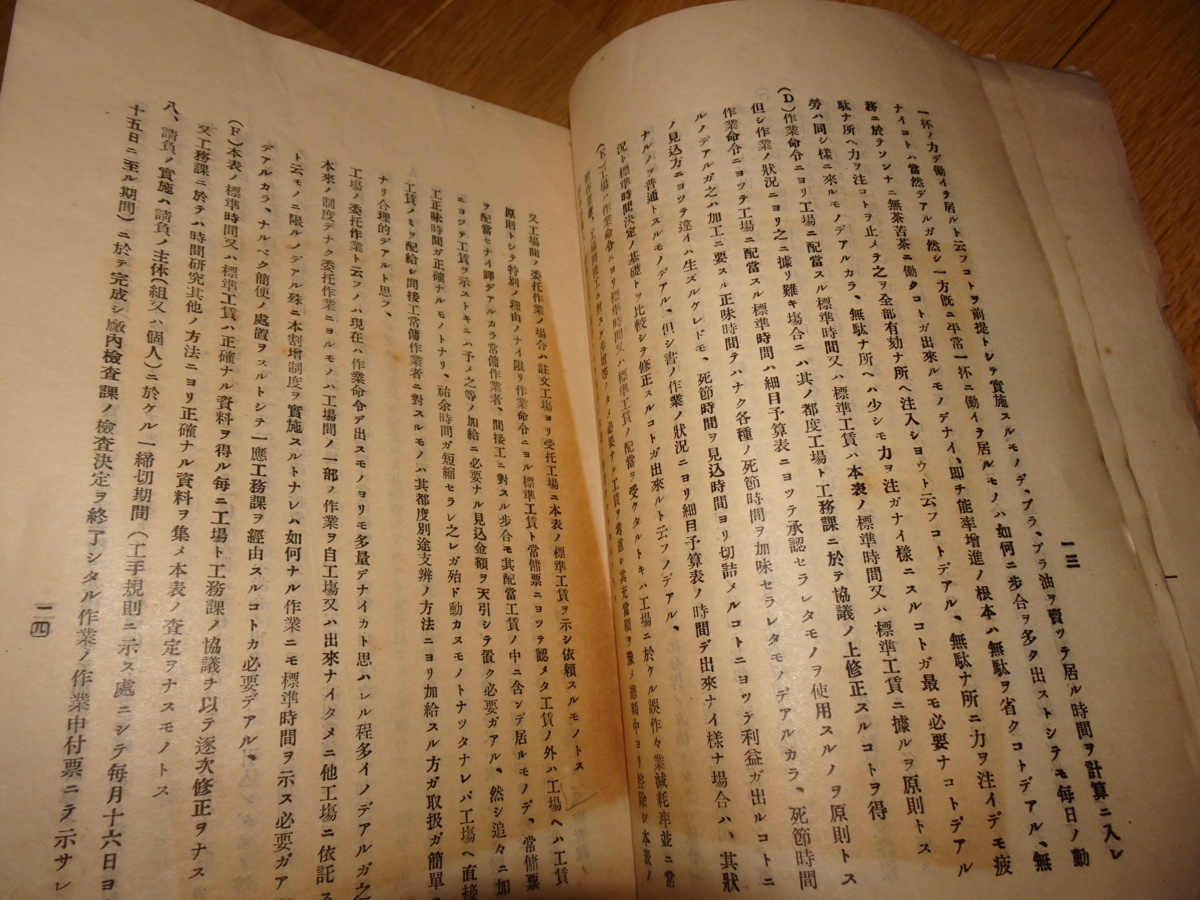 一三
一杯ノ力デ働イテ居ルト云フコトヲ前提トシテ實施スルモノデ、ブラ、ブラ油ヲ賣ツテ居ル時間ヲ計算ニ入レ
ナイコトハ當然デアルガ然シ一方既ニ平常一杯ニ働イテ居ルモノハ如何ニ步合ヲ多ク出ストシテモ毎日ノ勤
務ニ於テソンナニ無茶苦茶ニ働クコトガ出來ルモノデナイ、卽チ能率增進ノ根本ハ無駄ヲ省クコトデアル、無
駄ナ所ヘ力ヲ注コトヲ止メテ之ヲ全部有効ナ所ヘ注入シヨウト云フコトデアル、無駄ナ所ニ力ヲ注イデモ疲
勞ハ同シ樣ニ來ルモノデアルカラ、無駄ナ所ヘハ少シモ力ヲ注ガナイ樣ニスルコトガ最モ必要ナコトデアル
(D)作業命令ニヨリ工場ニ配當スル標準時間又ハ標準工賃ハ本表ノ標準時間又ハ標準工賃ニ據ルヲ原則トス
但シ作業ノ狀況ニヨリ之ニ據リ難キ場合ニハ其ノ都度工場ト工務課ニ於テ協議ノ上修正スルコトヲ得
作業命令ニヨツテ工場ニ配當スル標準時間ハ細目予算表ニヨツテ承認セラレタモノヲ使用スルノヲ原則トス
ルノデアルガ之ハ加工ニ要スル正味時間デハナク各種ノ死節時間ヲ加味セラレタモノデアルカラ、死節時間
ノ見込方ニヨツテ違イハ生ズルケレドモ、死節時間ヲ見込時間ヨリ切詰メルコトニヨツテ利益ガ出ルコトニ
ナルノヲ普通トスルモノデアル、但シ書ノ作業ノ狀況ニヨリ細目予算表ノ時間デ出來ナイ樣ナ場合ハ、其狀
況ト標準時間決定ノ基礎トヲ比較シテ修正スルコトガ出來ルト云フノデアル、
(E)工場ハ作業命令ニヨリ標準時間又ハ標準工賃ノ配當ヲ受ケタルトキハ工場ニ於ケル誤作々業減耗率並ニ常
工賃ヲ考慮シ其充當額ヲ豫メ總額中ヨリ控除シ本表ノ
又工場間ノ委托作業ノ場合ハ註文工場ヨリ受托工場ニ本表ノ標準工賃ヲ示シ依賴スルモノトス
原則トシテ特別ノ理由ノナイ限リ作業命令ニヨル標準工賃ト常傭票ニヨツテ認メタ工賃ノ外ハ工場ヘハ工賃
ヲ配當セナイ譯デアルカラ常傭作業者、間接工ニ對スル步合モ其配當工賃ノ中ニ含ンデ居ルモノデ、常傭票
ニヨツテ工賃ヲ示ストキニハ予メ之等ノ加給ニ必要ナル見込金額ヲ天引シテ置ク必要ガアル、然シ追々ニ加
工正味時間ガ正確ナルモノトナリ、祐余時間ガ短縮セラレ之レガ殆ド動カヌモノトナツタナレバ工場ヘ直接
工賃ノミヲ配給シ間接工常傭作業者ニ對スルモノハ其都度別途支辨ノ方法ニヨリ加給スル方ガ取扱ガ簡單
ナリ合理的デアルト思フ、
工場ノ委托作業ト云フハ現在ハ作業命令デ出スモノヨリモ多量デナイカト思ハレル程多イノデアルガ之
本來ノ制度デナク委托作業ニヨルモノハ工場間ノ一部ノ作業ヲ自工場又ハ出來ナイタメニ他工場ニ依託ス
ト云モノニ限ルノデアル殊ニ本割增制度ヲ實施スルトナレハ如何ナル作業ニモ標準時間ヲ示ス必要ガア
デアルカラ、ナルベク簡便ノ處置ヲスルトシテ一應工務課ヲ經由スルコトカ必要デアル、
(F)本表ノ標準時間又ハ標準工賃ハ正確ナル資料ヲ得ル毎ニ工場ト工務課ノ協議ヲ以テ逐次修正ヲナス
又工務課ニ於テハ時間研究其他ノ方法ニヨリ正確ナル資料ヲ集メ本表ノ査定ヲナスモノトス
八、請負ノ實施ハ請負ノ主体(組又ハ個人)ニ於ケル一締切期間(工手規則ニ示ス處ニシテ毎月十六日ヨ
十五日ニ至ル期間)ニ於テ完成シ廠内檢査課ノ檢査決定ヲ終了シタル作業ノ作業申付票ニテ示サレ
一四